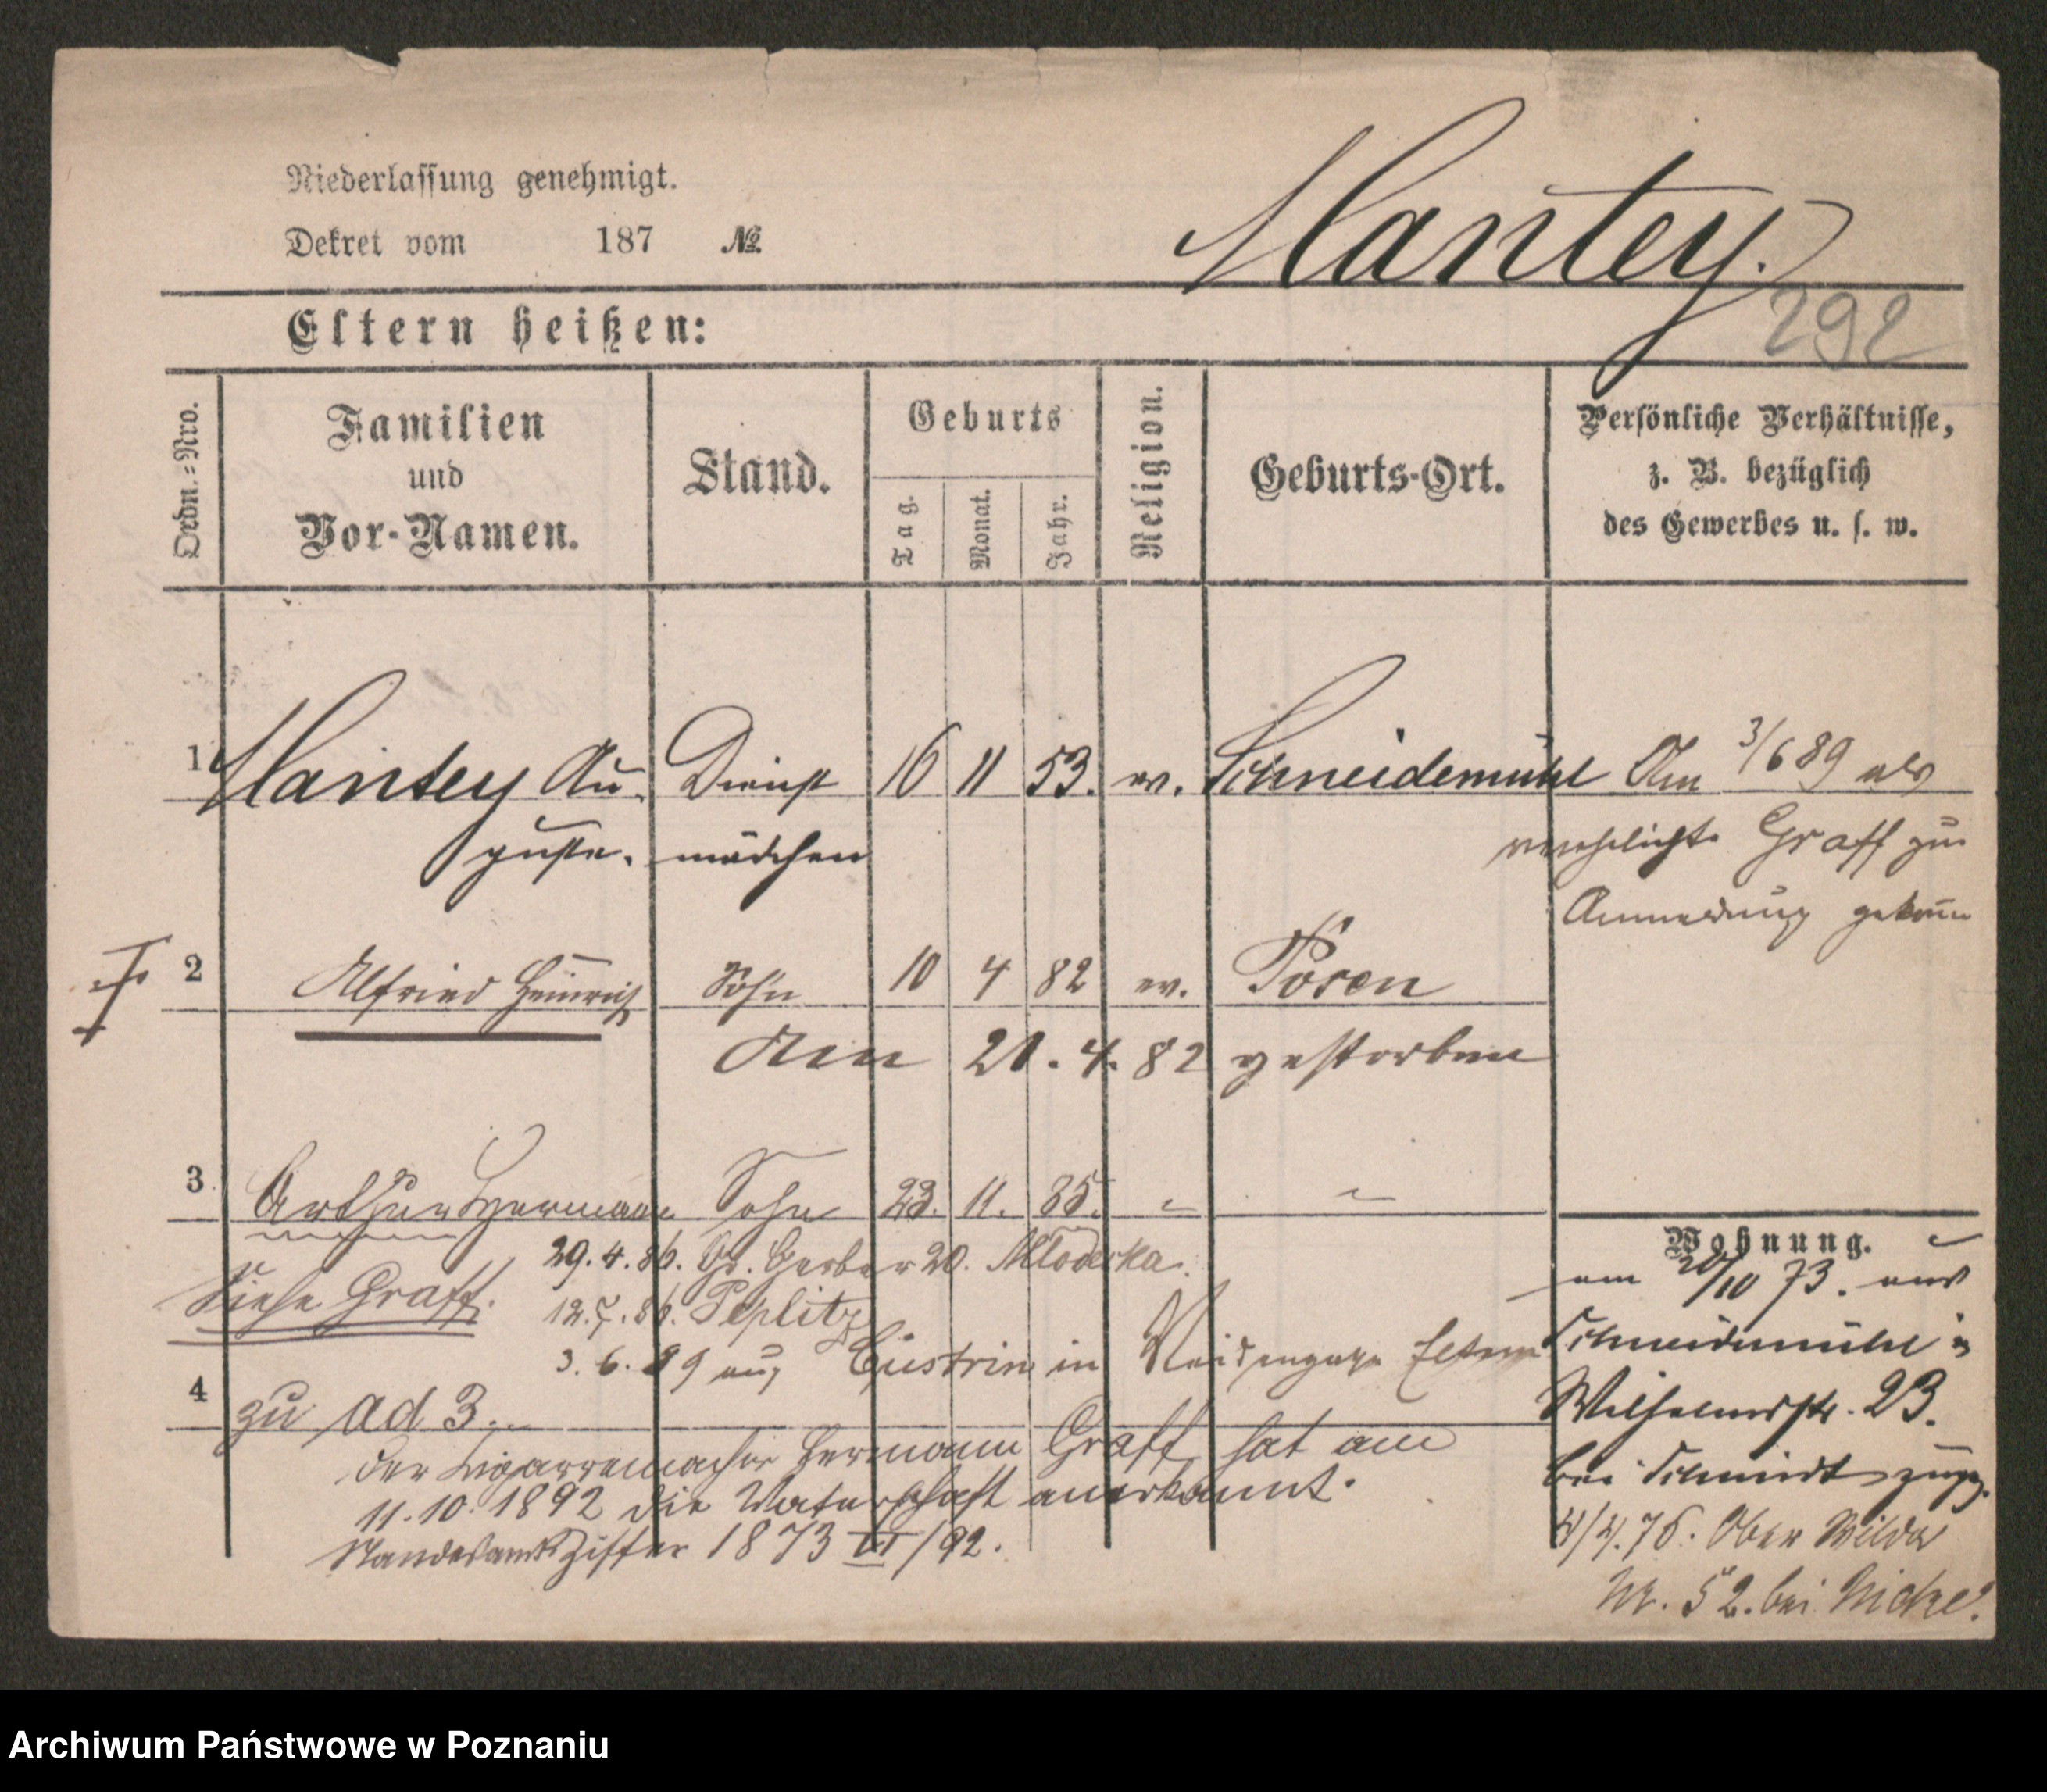 Niederlassung genehmigt.
Dekret vom 187 №
Mantey.
292
Eltern heißen:
Ordn.=Nro.
Familien
und
Vor-Namen.
Stand.
Geburts
Tag.
Monat.
Jahr.
Religion.
Geburts-Ort.
Persönliche Verhältnisse,
z. B. bezüglich
des Gewerbes u. s. w.
1 Mantey Au- Dienst 16 11 53. ev. Schneidemühl Am 3/6 89 als
guste. mädchen verehelichte Graff zur
Anmeldung
2 Alfried Heinrich Sohn 10 4 82 ev. Posen
Am 21. 4. 82 gestorben
3 Arthur Hermann Sohn 23. 11. 85. " "
29. 4. 86. Gr. Gerber 20. Mloderka.
Siehe Graff.
12. 7. 86. Peplitz
3. 6. 89 aus Cüstrin in
4 zu ad 3.
Der Cigarremacher Hermann Graff hat am
11. 10. 1892 die Vaterschaft anerkannt.
Standesamts Ziffer 1873 III/92.
Wohnung.
am 20/10 73. aus
Schneidemühl in
Wilhelmsstr. 23.
bei Schmidt zugz.
Ober Wilda
Nr. 52. bei
Archiwum Państwowe w Poznaniu